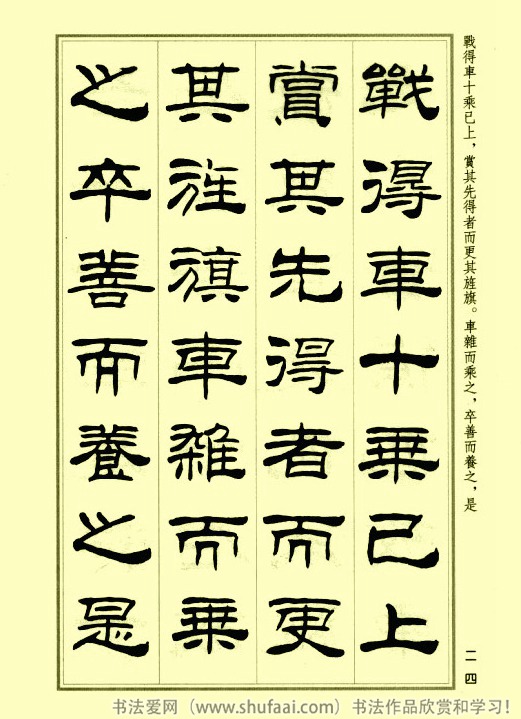 戰得車十乘已上，賞其先得者而更其旌旗。車雜而乘之，卒善而養之，是
戰得車十乘已上
賞其先得者而更
其旌旗車雜而乘
之卒善而養之是
二四
书法爱网（www.shufaai.com）书法作品欣赏和学习！